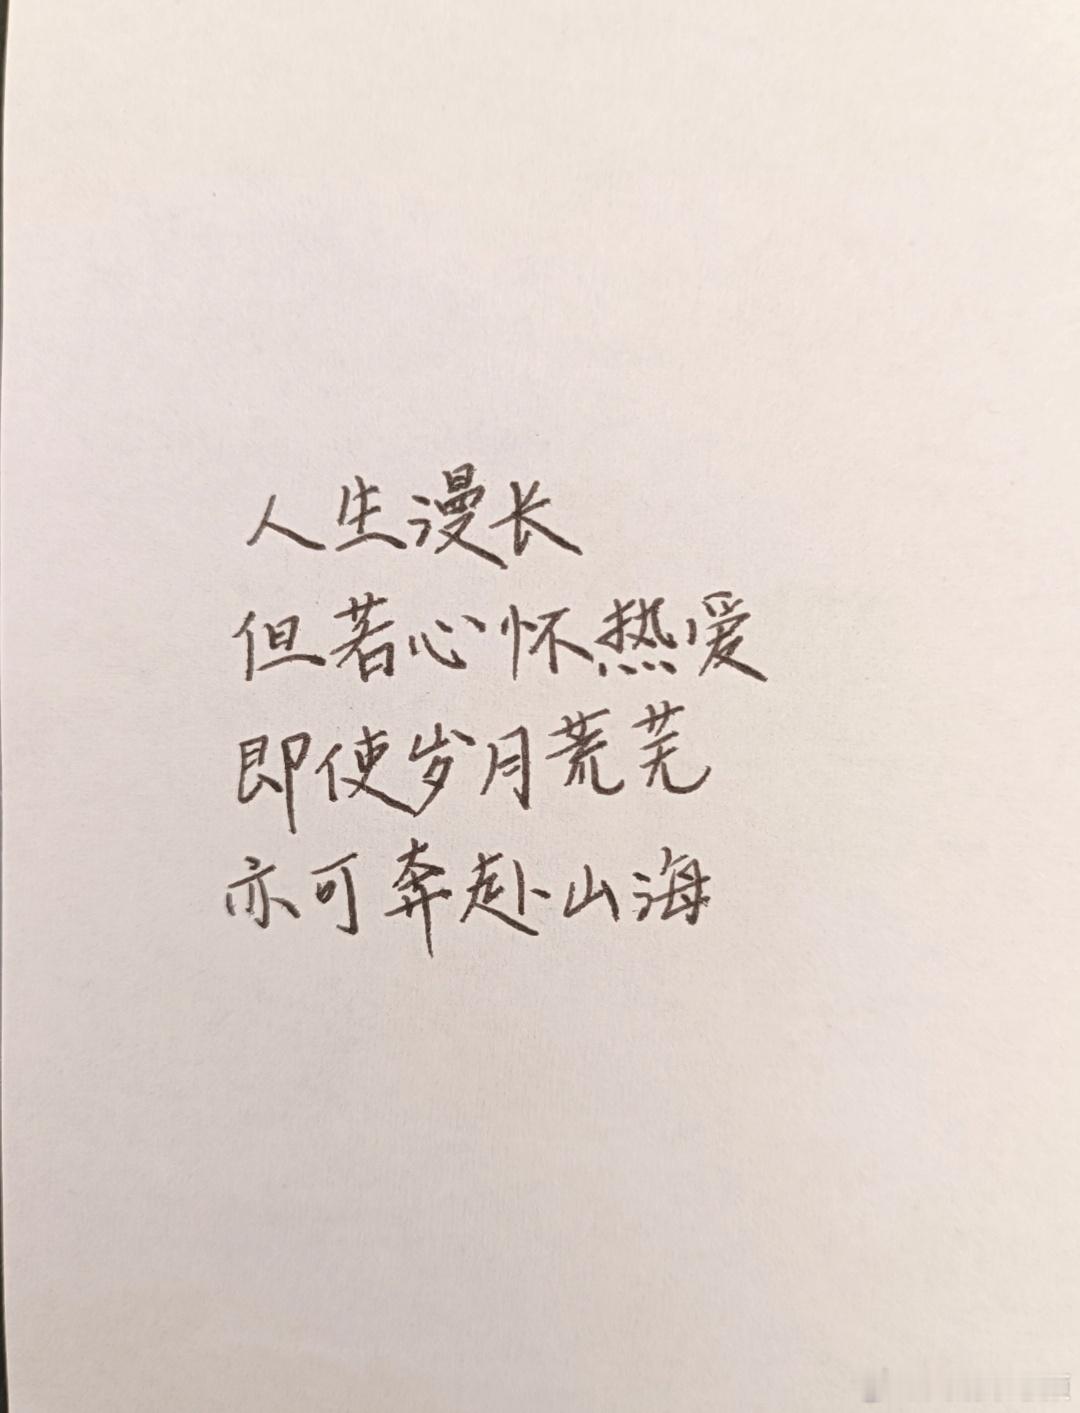 人生漫长
但若心怀热爱
即使岁月荒芜
亦可奔赴山海